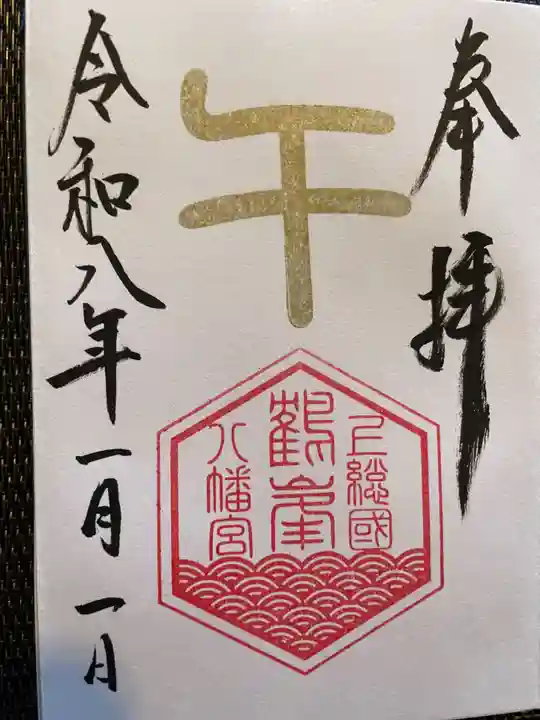 奉拝
午
上総國
鶴峯
八幡宮
令和八年一月一日